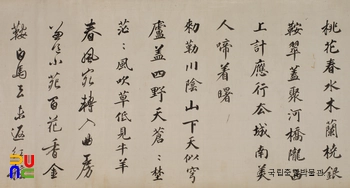 桃花春水木蘭橈銀
鞍翠蓋聚河橋隴西
上計應行去城南美
人啼着曙
勅勒川陰山下天似穹
盧蓋四野天蒼〻埜
茫〻風吹草低見牛羊
春風宛轉入曲房
兼送小苑百花香金
鞍白馬去未返
국립중앙박물관